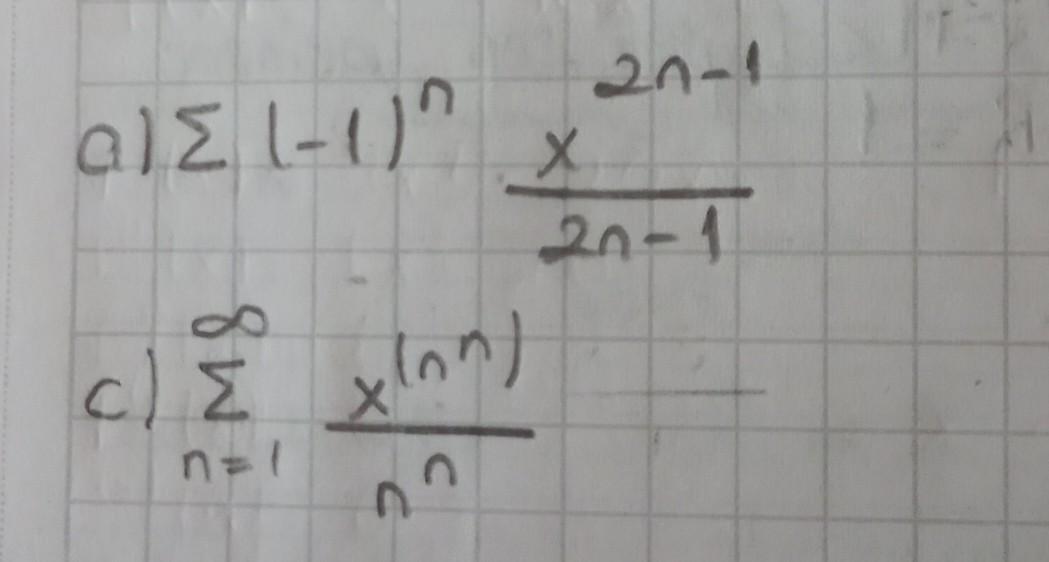 a) Σ (-1)^n x^(2n-1) / (2n-1)
c) Σ_{n=1}^{∞} x^(n^n) / n^n